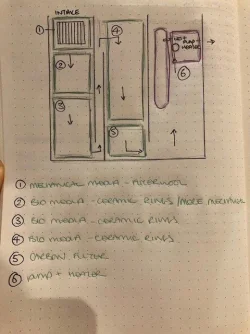 INTAKE
①
④
②
③
⑤
PUMP +
HEATER
⑥
① MECHANICAL MEDIA - FILTERWOOL
② BIO MEDIA - CERAMIC RINGS / MORE MECHANICAL
③ BIO MEDIA - CERAMIC RINGS
④ BIO MEDIA - CERAMIC RINGS
⑤ CARBON FILTER
⑥ PUMP + HEATER